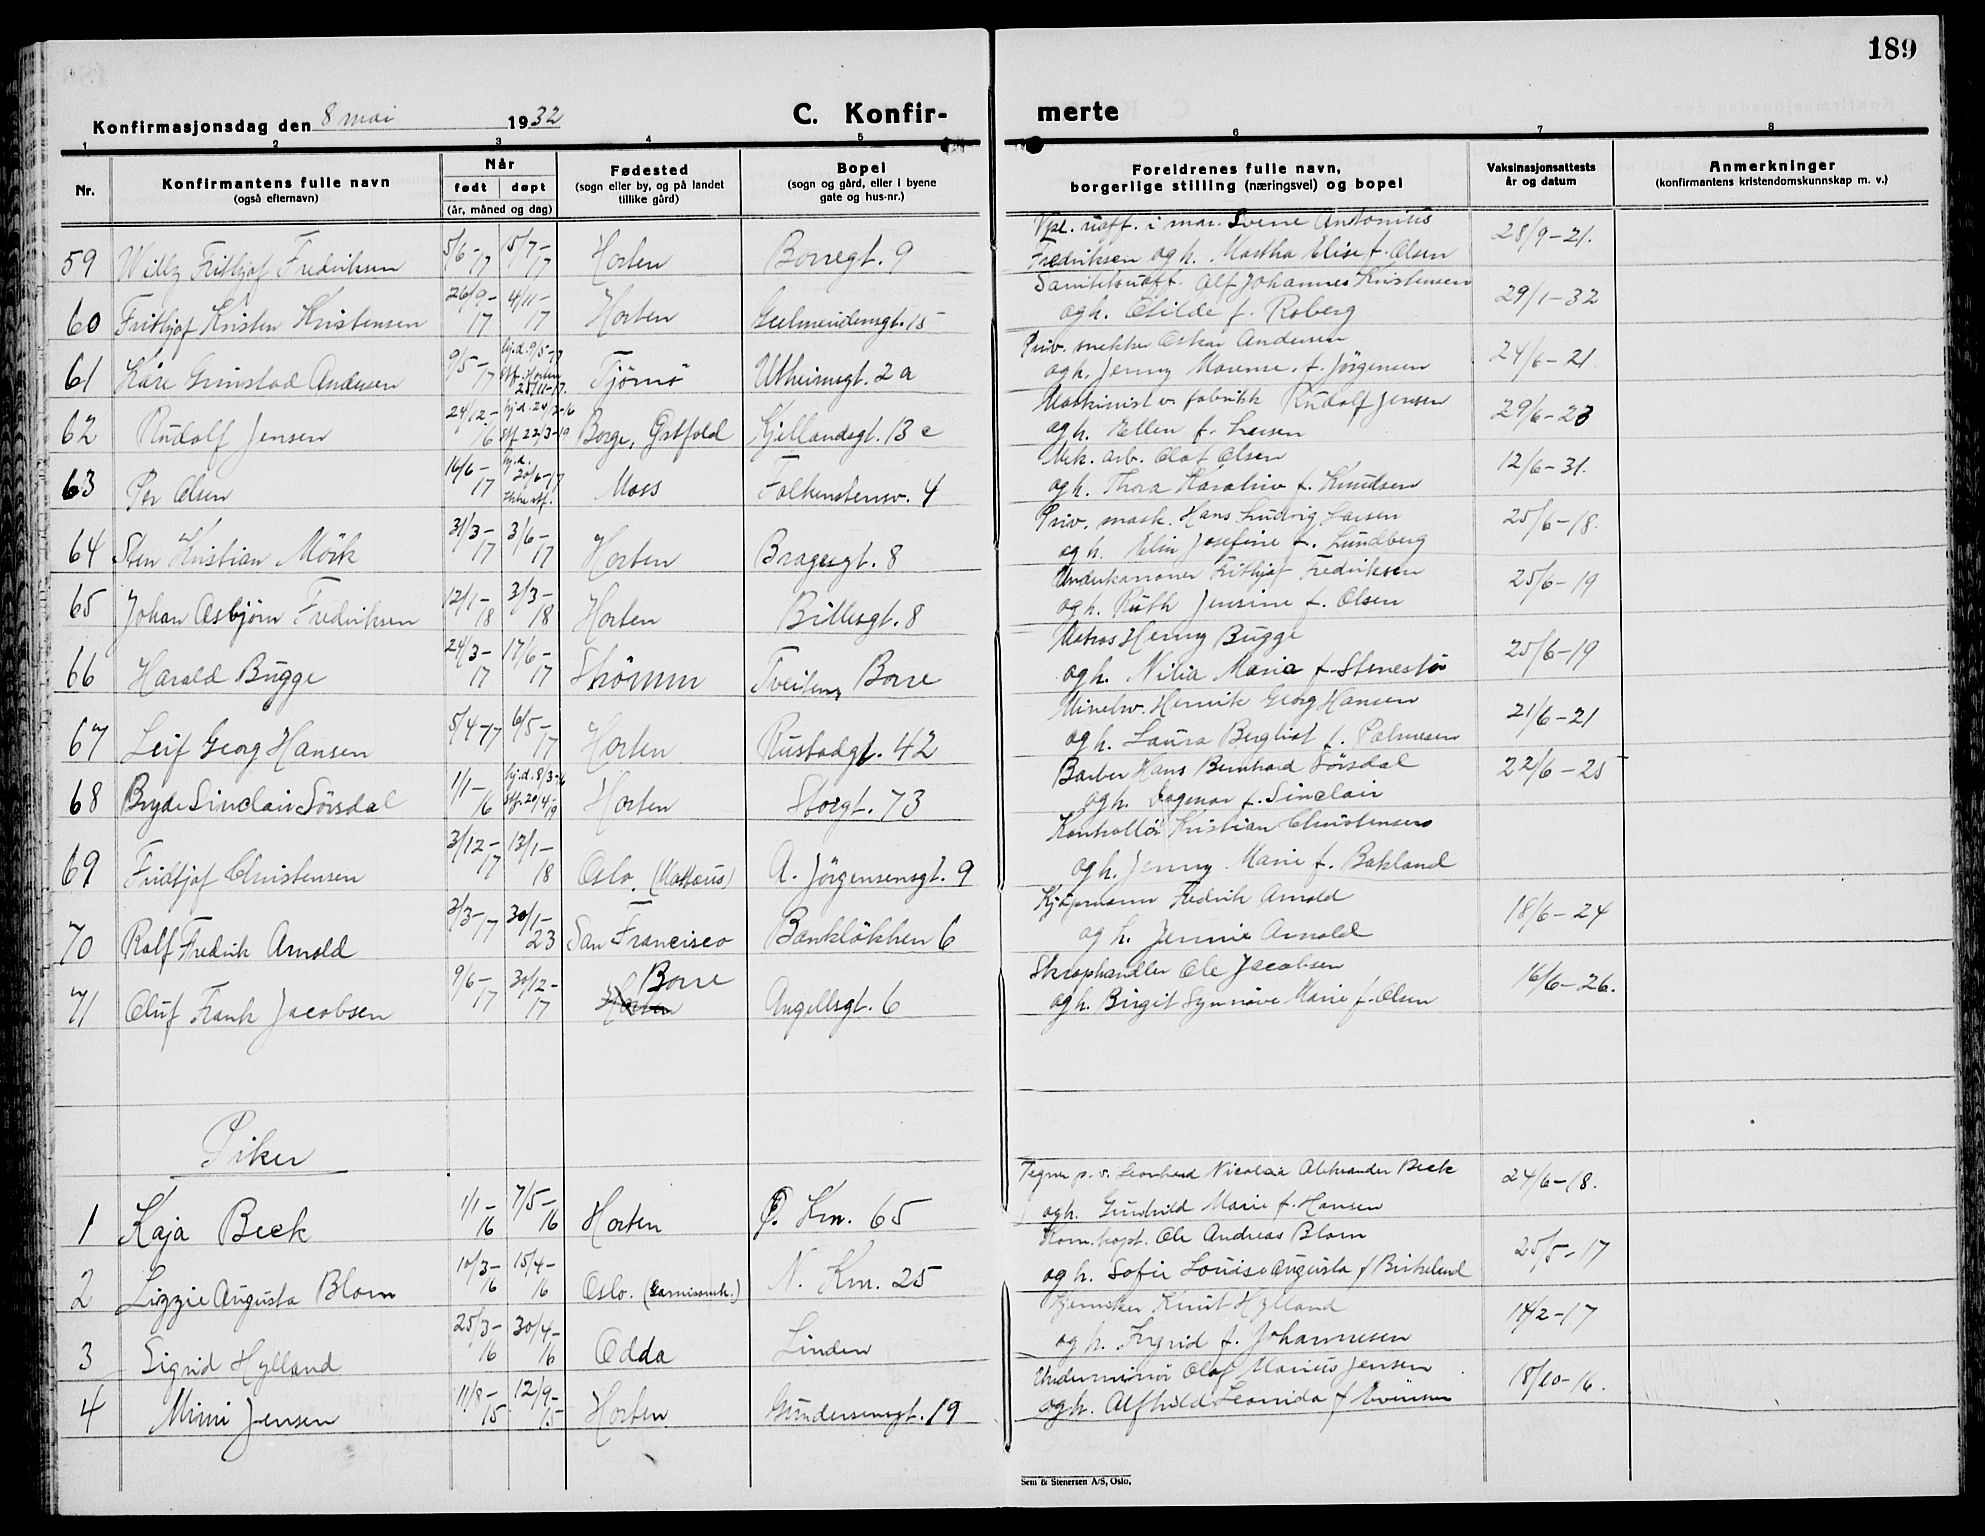 189
Konfirmasjonsdag den 8 mai 1932 C. Konfir- merte
1 2 3 4 5 6 7 8
Nr. Konfirmantens fulle navn (også efternavn) Når født døpt (år, måned og dag) Fødested (sogn eller by, og på landet tillike gård) Bopel (sogn og gård, eller i byene gate og hus-nr.) Foreldrenes fulle navn, borgerlige stilling (næringsvei) og bopel Vaksinasjonsattests år og datum Anmerkninger (konfirmantens kristendomskunnskap m. v.)
59 Willy Frithjof Fredriksen 5/6-17 15/7-17 Horten Borregt. 9 uoff. i mar. Sverre Antonius 28/9-21.
Fredriksen og h. Martha Elise f. Olsen
60 Frithjof Kristen Kristensen 26/9-17 4/11-17 Horten Geelmeidensgt. 15 Sanitetsuoff. Alf Johannes Kristensen 29/1-32
og h. Otilde f. Roberg
61 Kåre Grimstad Andersen 9/5-17 hj.d. 9/5-17 Stf. Horten 25/11-17. Tjømø Utheimsgt. 2a Priv. snekker Oskar Andersen 24/6-21
og h. Jenny Marense f. Jörgensen
62 Rudolf Jensen 24/12-16 hj.d. 24/12-16 Stf. 22/3-19 Borge, Østfold Kjellandsgt. 13 c Maskinist v. fabrikk Rudolf Jensen 29/6-23
og h. Ellen f. Larsen
63 Per Olsen 16/6-17 hj.d. 20/6-17 Moss Falkenstensv. 4 Mek. arb. Olaf Olsen 12/6-31.
og h. Thora Karoline f. Knudsen
64 Sten Kristian Mörk 31/3-17 3/6-17 Horten Bragesgt. 8 Priv. mask. Hans Ludvig Larsen 25/6-18.
og h. Elin Josefine f. Lundberg
65 Johan Asbjörn Fredriksen 12/1-18 3/3-18 Horten Billesgt. 8 Underkanoner Frithjof Fredriksen 25/6-19
og h. Ruth Jensine f. Olsen
66 Harald Bugge 24/3-17 17/6-17 Strömm Tveiten, Borre Matros Henry Bugge 25/6-19
og h. Nilia Maria f. Stenestö
67 Leif Georg Hansen 5/4-17 6/5-17 Horten Rustadgt. 42 Henrik Georg Hansen 21/6-21
og h. Laura Bergliot f. Palmesen
68 Bryde Sinclair Sörsdal 1/1-16 hj.d. 8/3-16 Stf. 20/4-19 Horten Storgt. 73 Barber Hans Bernhard Sörsdal 22/6-25
og h. Dagmar f. Sinclair
69 Fridtjof Christensen 3/12-17 13/1-18 Oslo. (Mattæus) A. Jörgensensgt. 9 Kontrollör Kristian Christensen
og h. Jenny Marie f. Bakland
70 Rolf Fredrik Arnold 3/3-17 30/1-23 San Francisco Banklökken 6 Kjöpmann Fredrik Arnold 18/6-24
og h. Jennie Arnold
71 Oluf Frank Jacobsen 9/6-17 30/12-17 Borre Horten Angellsgt. 6 Skraphandler Ole Jacobsen 16/6-26.
og h. Birgit Synnöve Marie f. Olsen
Piker
1 Kaja Beck 1/1-16 7/5-16 Horten Ø. Km. 65 Tegner p. v. Leonhard Nicolai Aleksander Beck 24/6-18.
og h. Gunhild Marie f. Hansen
2 Lizzie Augusta Blom 10/3-16 15/4-16 Oslo. (Garnisonsmk.) N. Km. 25 Kom. kapt. Ole Andreas Blom 25/5-17
og h. Sofie Louise Augusta f Birkeland
3 Sigrid Hylland 25/3-16 30/4-16 Odda Linden Knut Hylland 14/2-17
og h. Ingrid f. Johannesen
4 Mimi Jensen 11/8-15 12/9-15 Horten Gundersensgt. 19 Underminör Olaf Marius Jensen 18/10-16.
og h. Alfhild Leonida f Evensen
Sem & Stenersen A/S, Oslo.